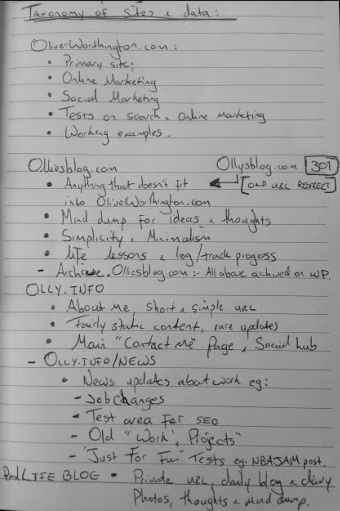 Taxonomy of Sites & data:
OliverWorthington.com:
• Primary site:
• Online Marketing
• Social Marketing
• Tests on search & Online Marketing
• Working examples.
Olliesblog.com Ollysblog.com 301
• Anything that doesn't fit ← OLD URL REDIRECT
into OliverWorthington.com
• Mind dump for ideas & thoughts
• Simplicity & Minimalism
• Life lessons & log/track progress
- Archive.Olliesblog.com:- All above archived on WP.
OLLY.INFO
• About me, short & simple URL
• Fairly static content, rare updates
• Main "Contact Me" page & Social hub
- OLLY.INFO/NEWS
• News updates about work eg:
- Job Changes
- Test area for SEO
- Old "Work", Projects"
- "Just For Fun" Tests eg. NBAJAM post.
LIFE BLOG • Private URL, daily blog & diary
Photos, thoughts & mind dump.